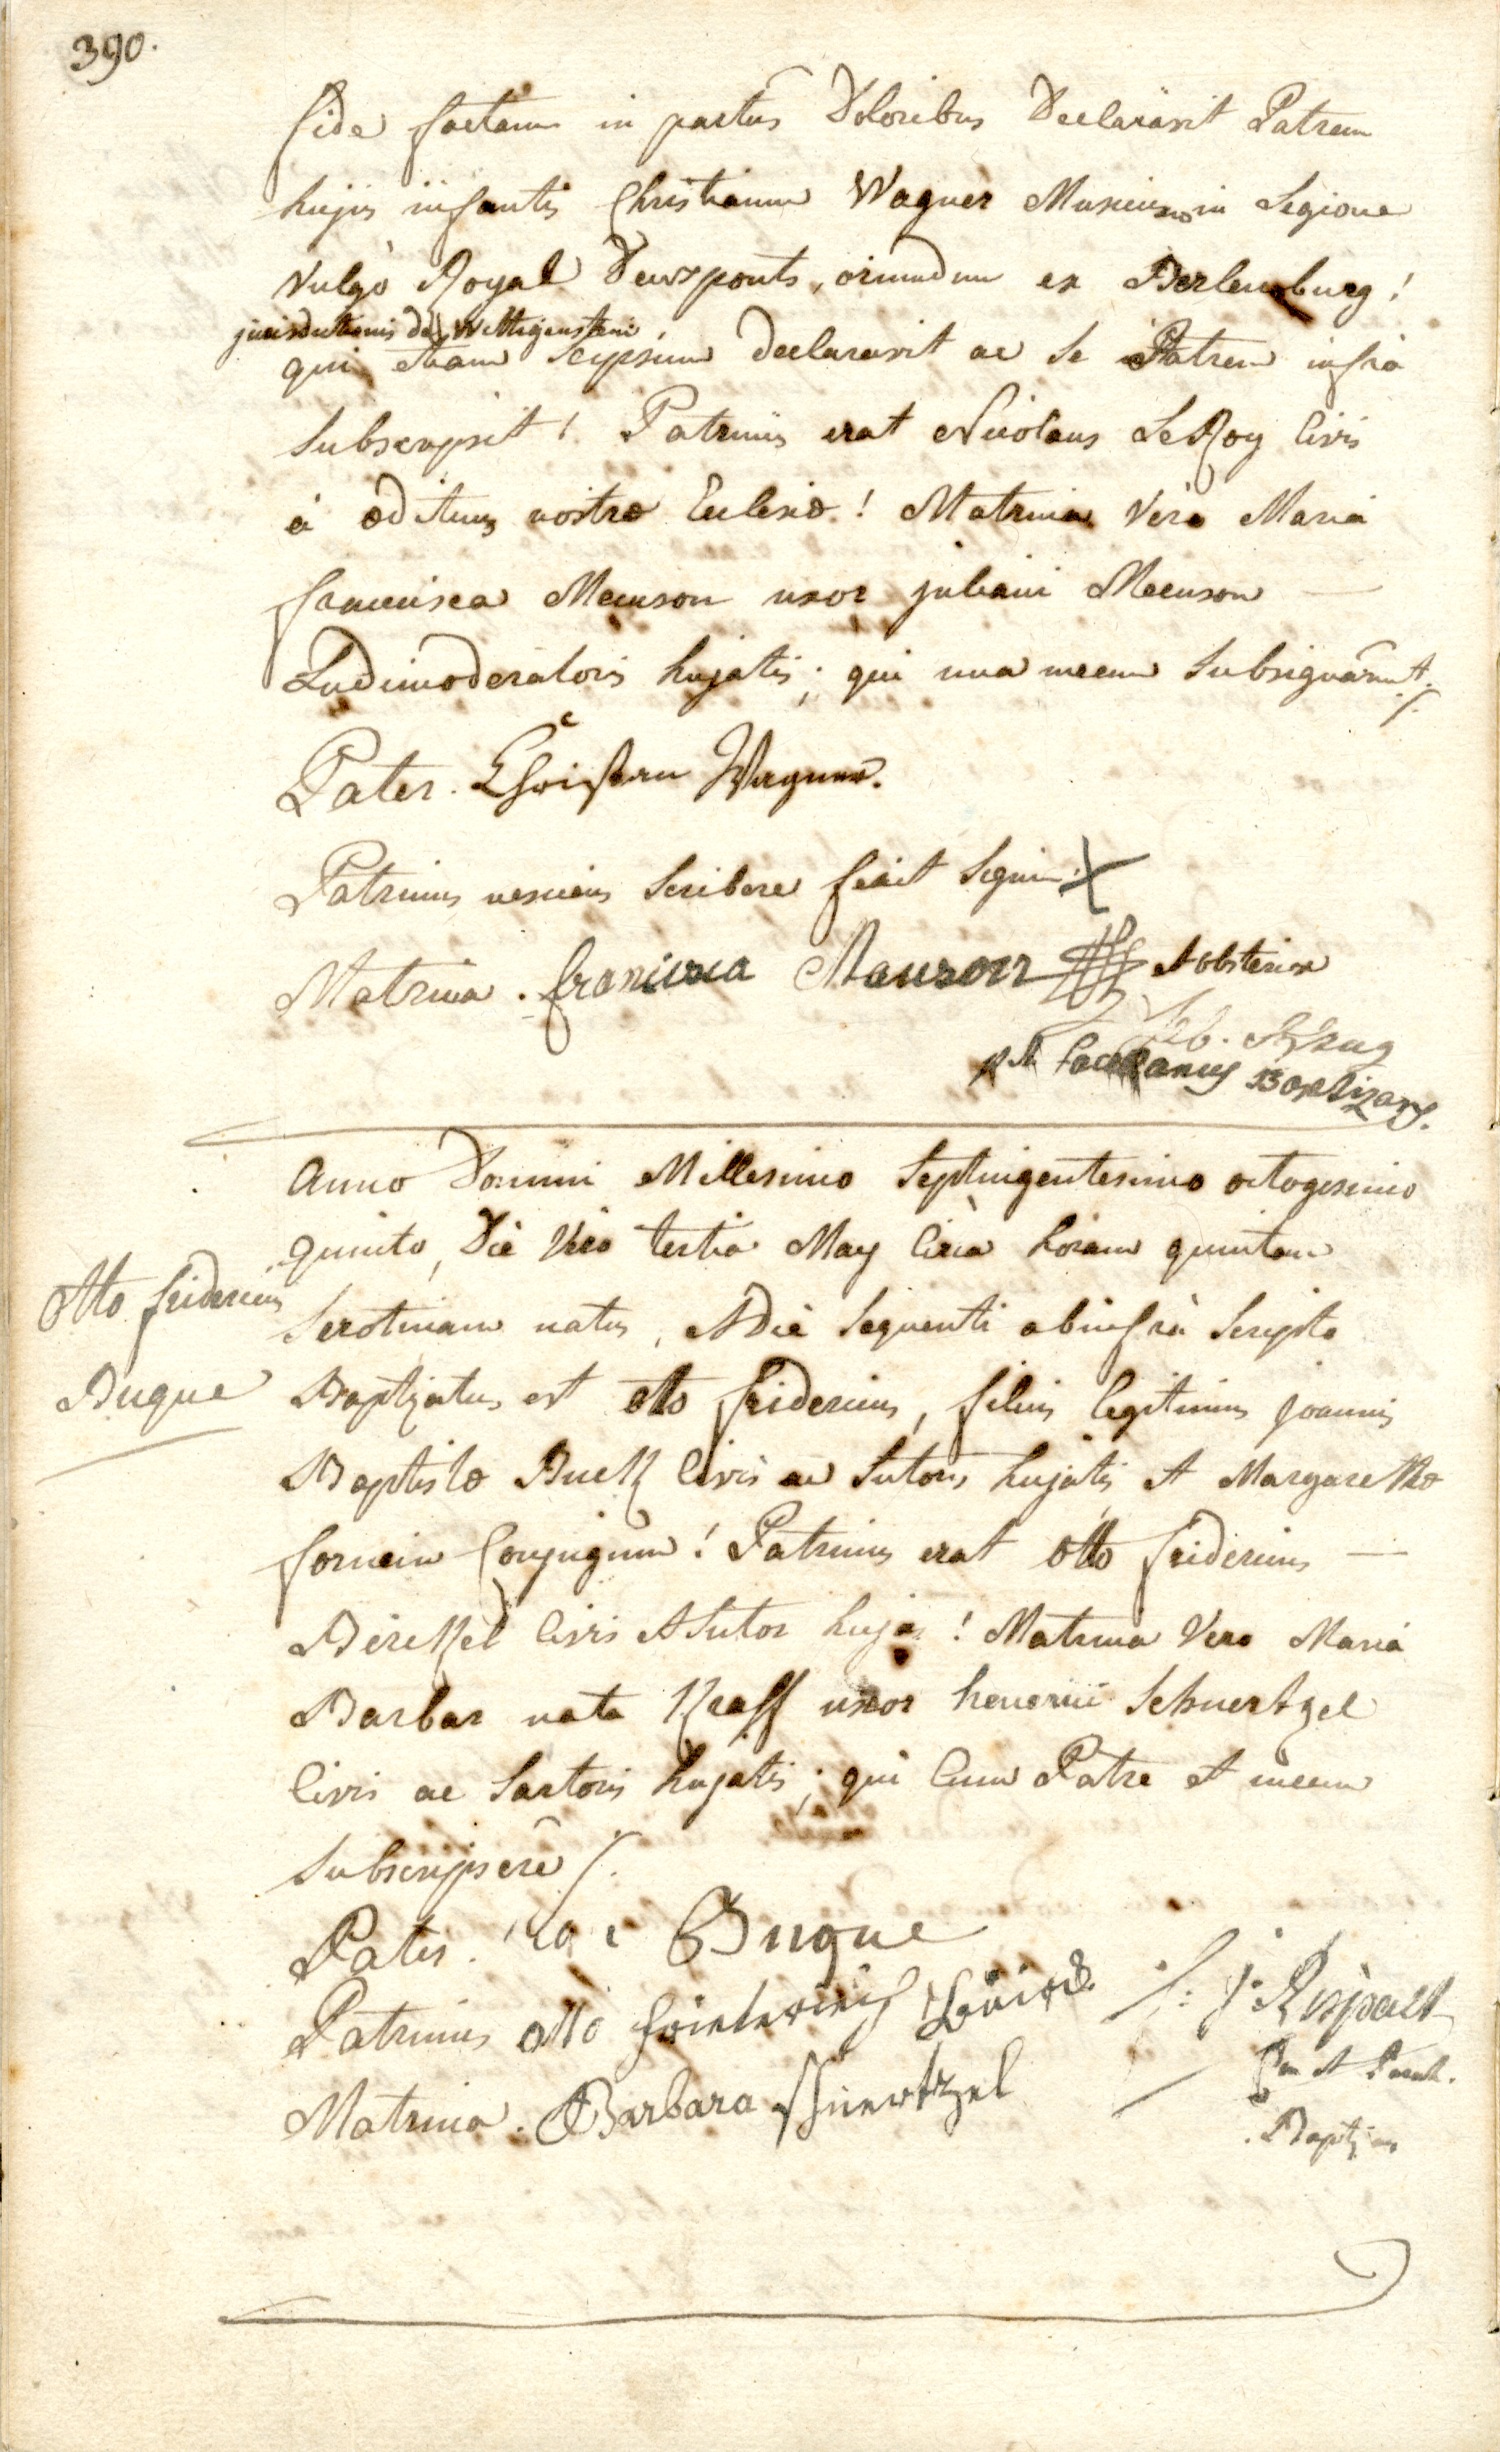 390.
fide factam in partus Doloribus Declaravit Patrem
hujus infantis Christianum Wagner Musicum in Legione
Vulgò Royal Deuxponts, oriundum ex Berlenburg!
jurisdictionis de Wittgenstein
qui etiam seipsum declaravit ac se Patrem infrà
Subscripsit! Patrinus erat Nicolaus LeRoy Civis
Ædituus nostræ Ecclesiæ! Matrina Vero Maria
francisca Meuson uxor juliani Meuson —
Ludimoderatoris hujatis; qui una mecum Subsignârunt ./.
Pater. Christian Wagner.
Patrinus nesciens Scribere fecit Signum X
Matrina. francisca Mauson et obstetrix
Baptizans.
Anno Domini Millesimo Septingentesimo octogesimo
quinto, Die Vero tertia May Circa horam quintam
Otto fridericus
Serotinam natus, et Die Sequenti ab infrà Scripto
Buque
Baptizatus est otto fridericus, filius legitimus joannis
Baptistæ Buck Civis ac Sutoris hujatis et Margarethæ
Conjugum! Patrinus erat otto fridericus —
Civis et Sutor hujas! Matrina Vero Maria
Barbar nata Kraff uxor henerici Schwertzel
Civis ac Sartoris hujatis; qui Cum Patre et mecum
Subscripsere ./.
Pater. Buque
Patrinus otto friederich
Matrina. Barbara Schwertzel
Baptizans